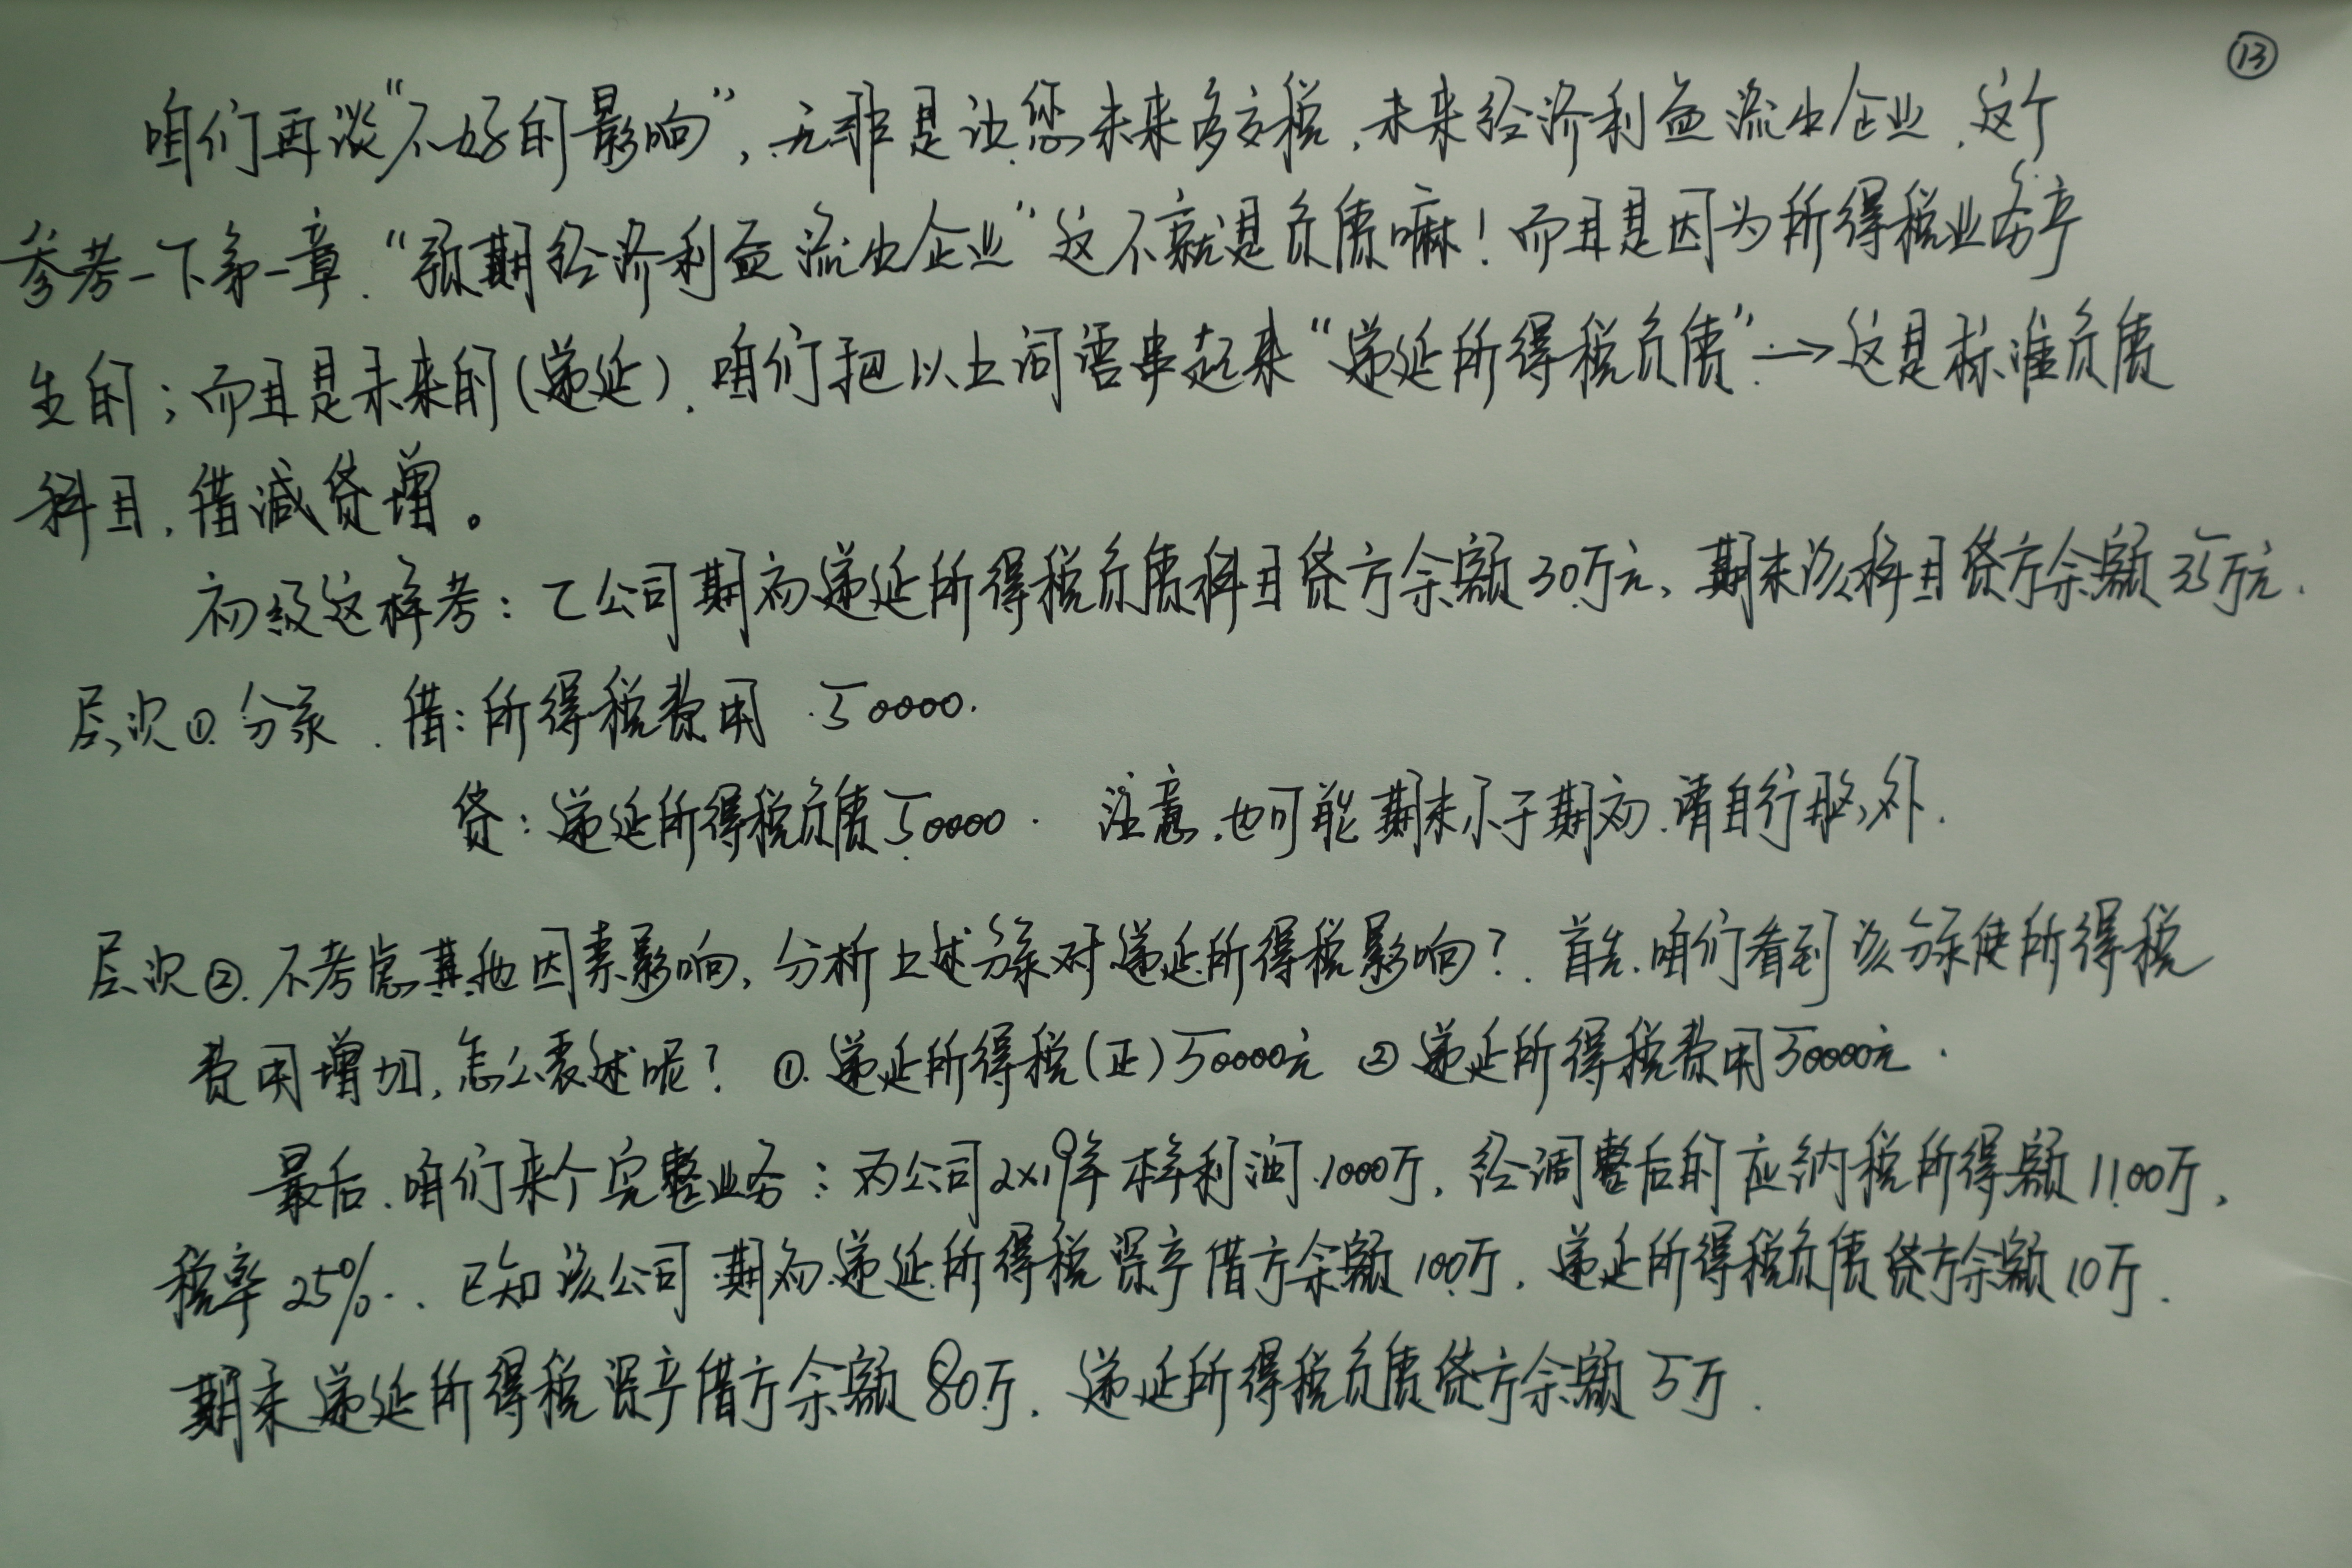 ⑬
咱们再谈“不好的影响”,无非是让您未来多交税,未来经济利益流出企业,这个
参考一下第一章.“预期经济利益流出企业”这不就是负债嘛!而且是因为所得税业务产
生的;而且是未来的(递延).咱们把以上词语串起来“递延所得税负债”→这是标准负债
科目,借减贷增。
初级这样考:乙公司期初递延所得税负债科目贷方余额30万元,期末该科目贷方余额35万元.
层次①.分录.借:所得税费用 50000.
贷:递延所得税负债50000. 注意,也可能期末小于期初.请自行脑补.
层次②.不考虑其他因素影响,分析上述分录对递延所得税影响?.首先.咱们看到该分录使所得税
费用增加,怎么表述呢? ①.递延所得税(正)50000元 ②递延所得税费用50000元.
最后.咱们来个完整业务:丙公司2×19年本年利润1000万,经调整后的应纳税所得额1100万,
税率25%.已知该公司期初递延所得税资产借方余额100万,递延所得税负债贷方余额10万.
期末递延所得税资产借方余额80万.递延所得税负债贷方余额5万.